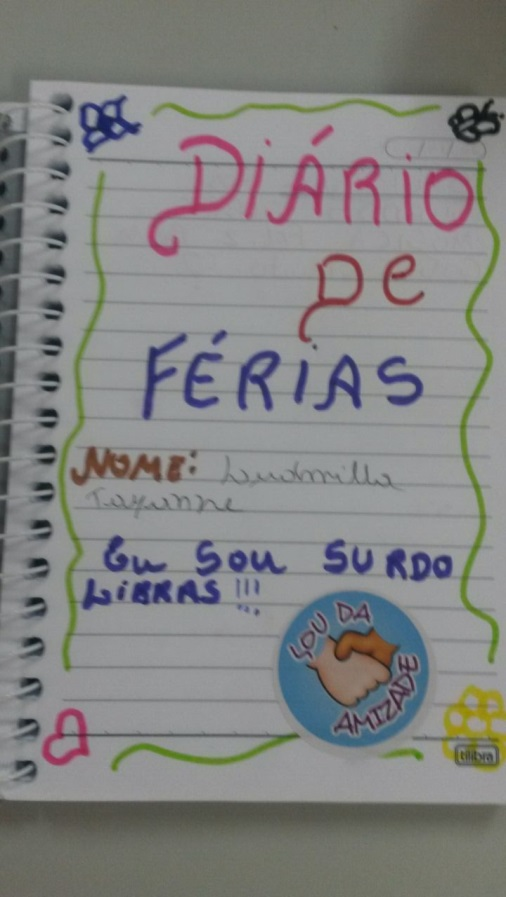 DiÁRiO
De
FÉRiAS
NOME: Ludmilla
Tayanne
Eu Sou SURDO
LiBRAS!!!
SOU DA
AMIZADE
tilibra